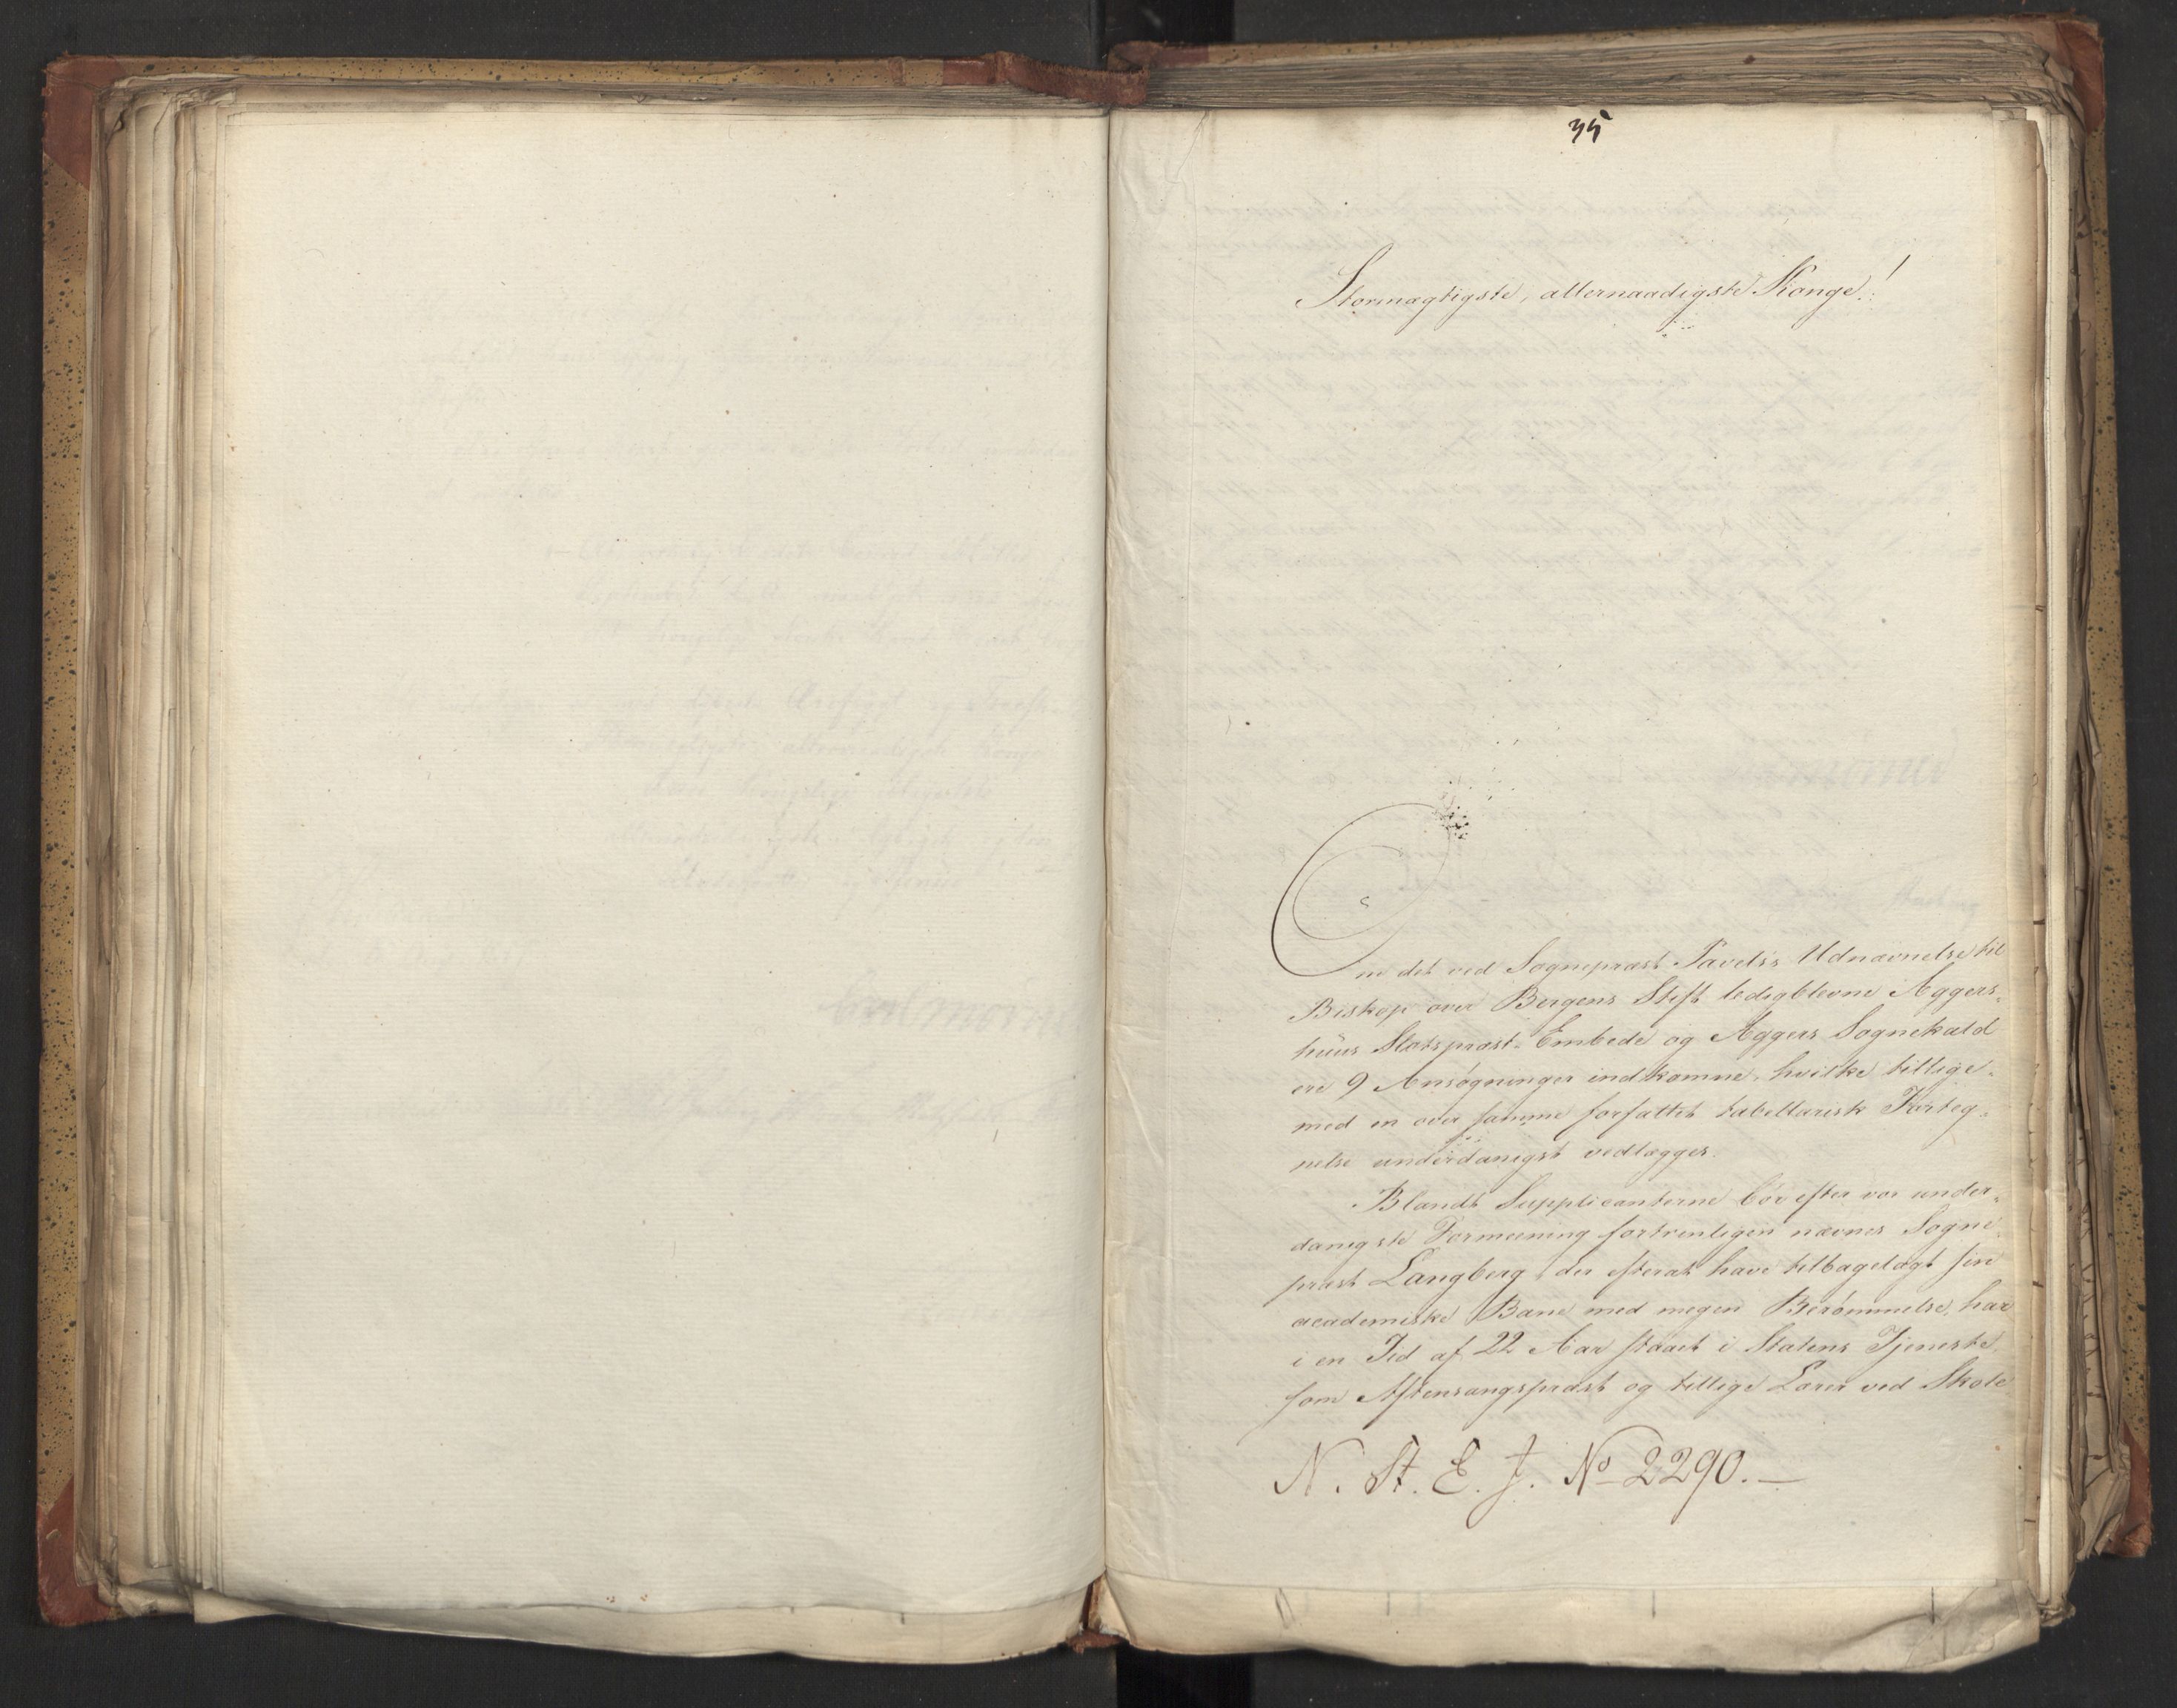 35
Stormægtigste, allernaadigste Konge!
Om det ved Sognepræst Pavels's Udnævnelse til
Biskop over Bergens Stift ledigblevne Aggers-
huus Slotspræst-Embede og Aggers Sognekald
ere 9 Ansøgninger indkomne, hvilke tillige-
med en over samme forfattet tabellarisk Forteg-
nelse underdanigst vedlægges.
Blandt Supplicanterne bør efter vor under-
danigste Formeening fortrinligen nævnes Sogne-
præst Langberg, der efterat have tilbagelagt sin
academiske Bane med megen Berømmelse, har
i en Tid af 22 Aar staaet i Statens Tjeneste,
som Aftensangspræst og tillige Lærer ved Skole
N. St. E. J. No 2290.—